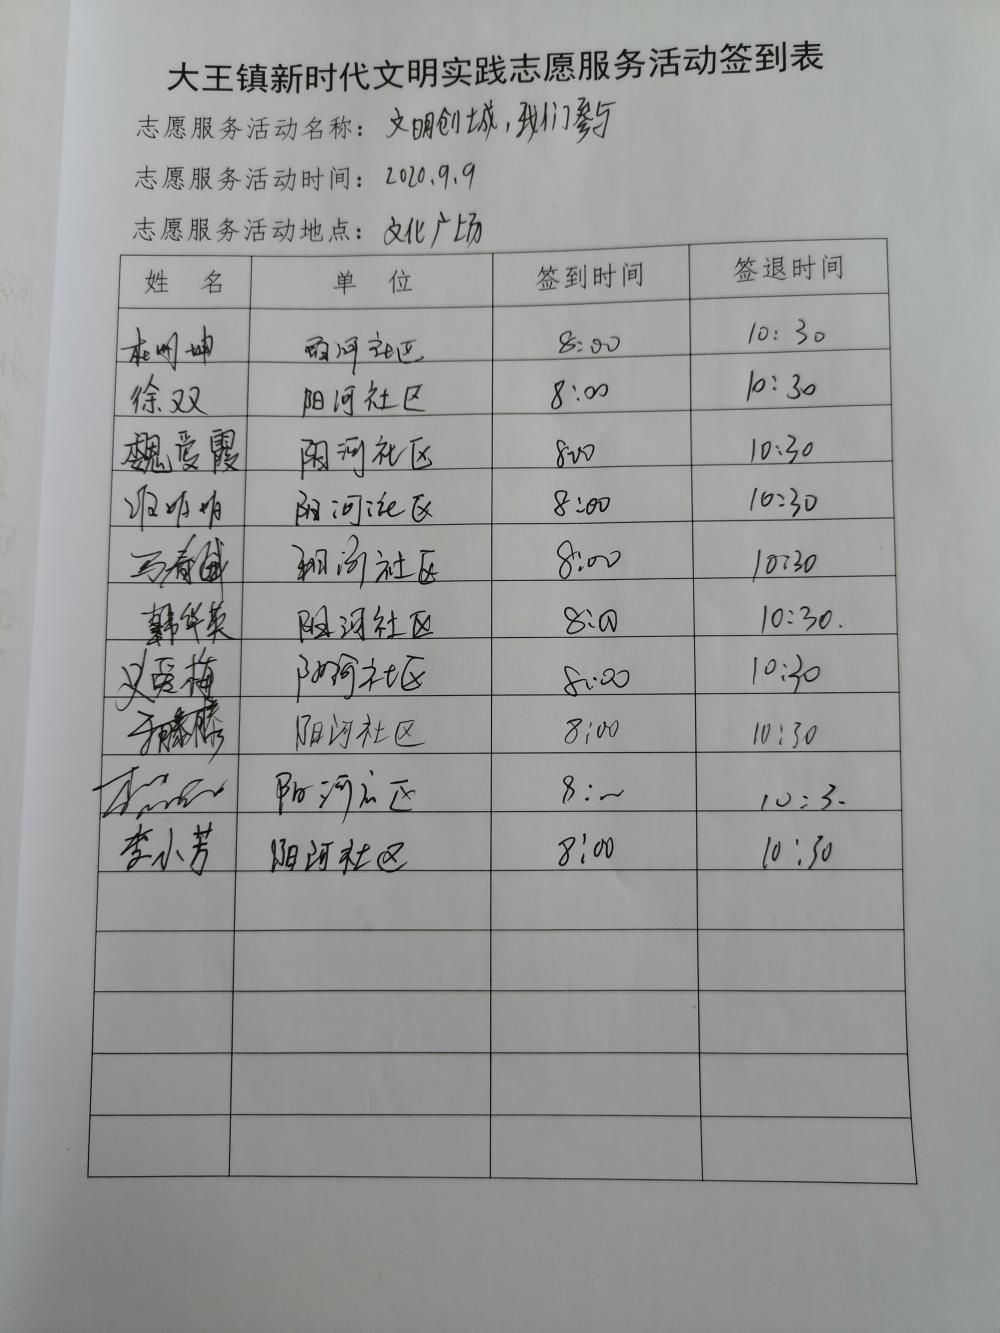 大王镇新时代文明实践志愿服务活动签到表
志愿服务活动名称：文明创城，我们参与
志愿服务活动时间：2020.9.9
志愿服务活动地点：文化广场
姓 名 单 位 签到时间 签退时间
杜明坤 阳河社区 8:00 10:30
徐双 阳河社区 8:00 10:30
魏爱霞 阳河社区 8:00 10:30
阳河社区 8:00 10:30
马春 阳河社区 8:00 10:30
韩华英 阳河社区 8:00 10:30.
爱梅 阳河社区 8:00 10:30
阳河社区 8:00 10:30
阳河社区 8: 10:3
李小芳 阳河社区 8:00 10:30